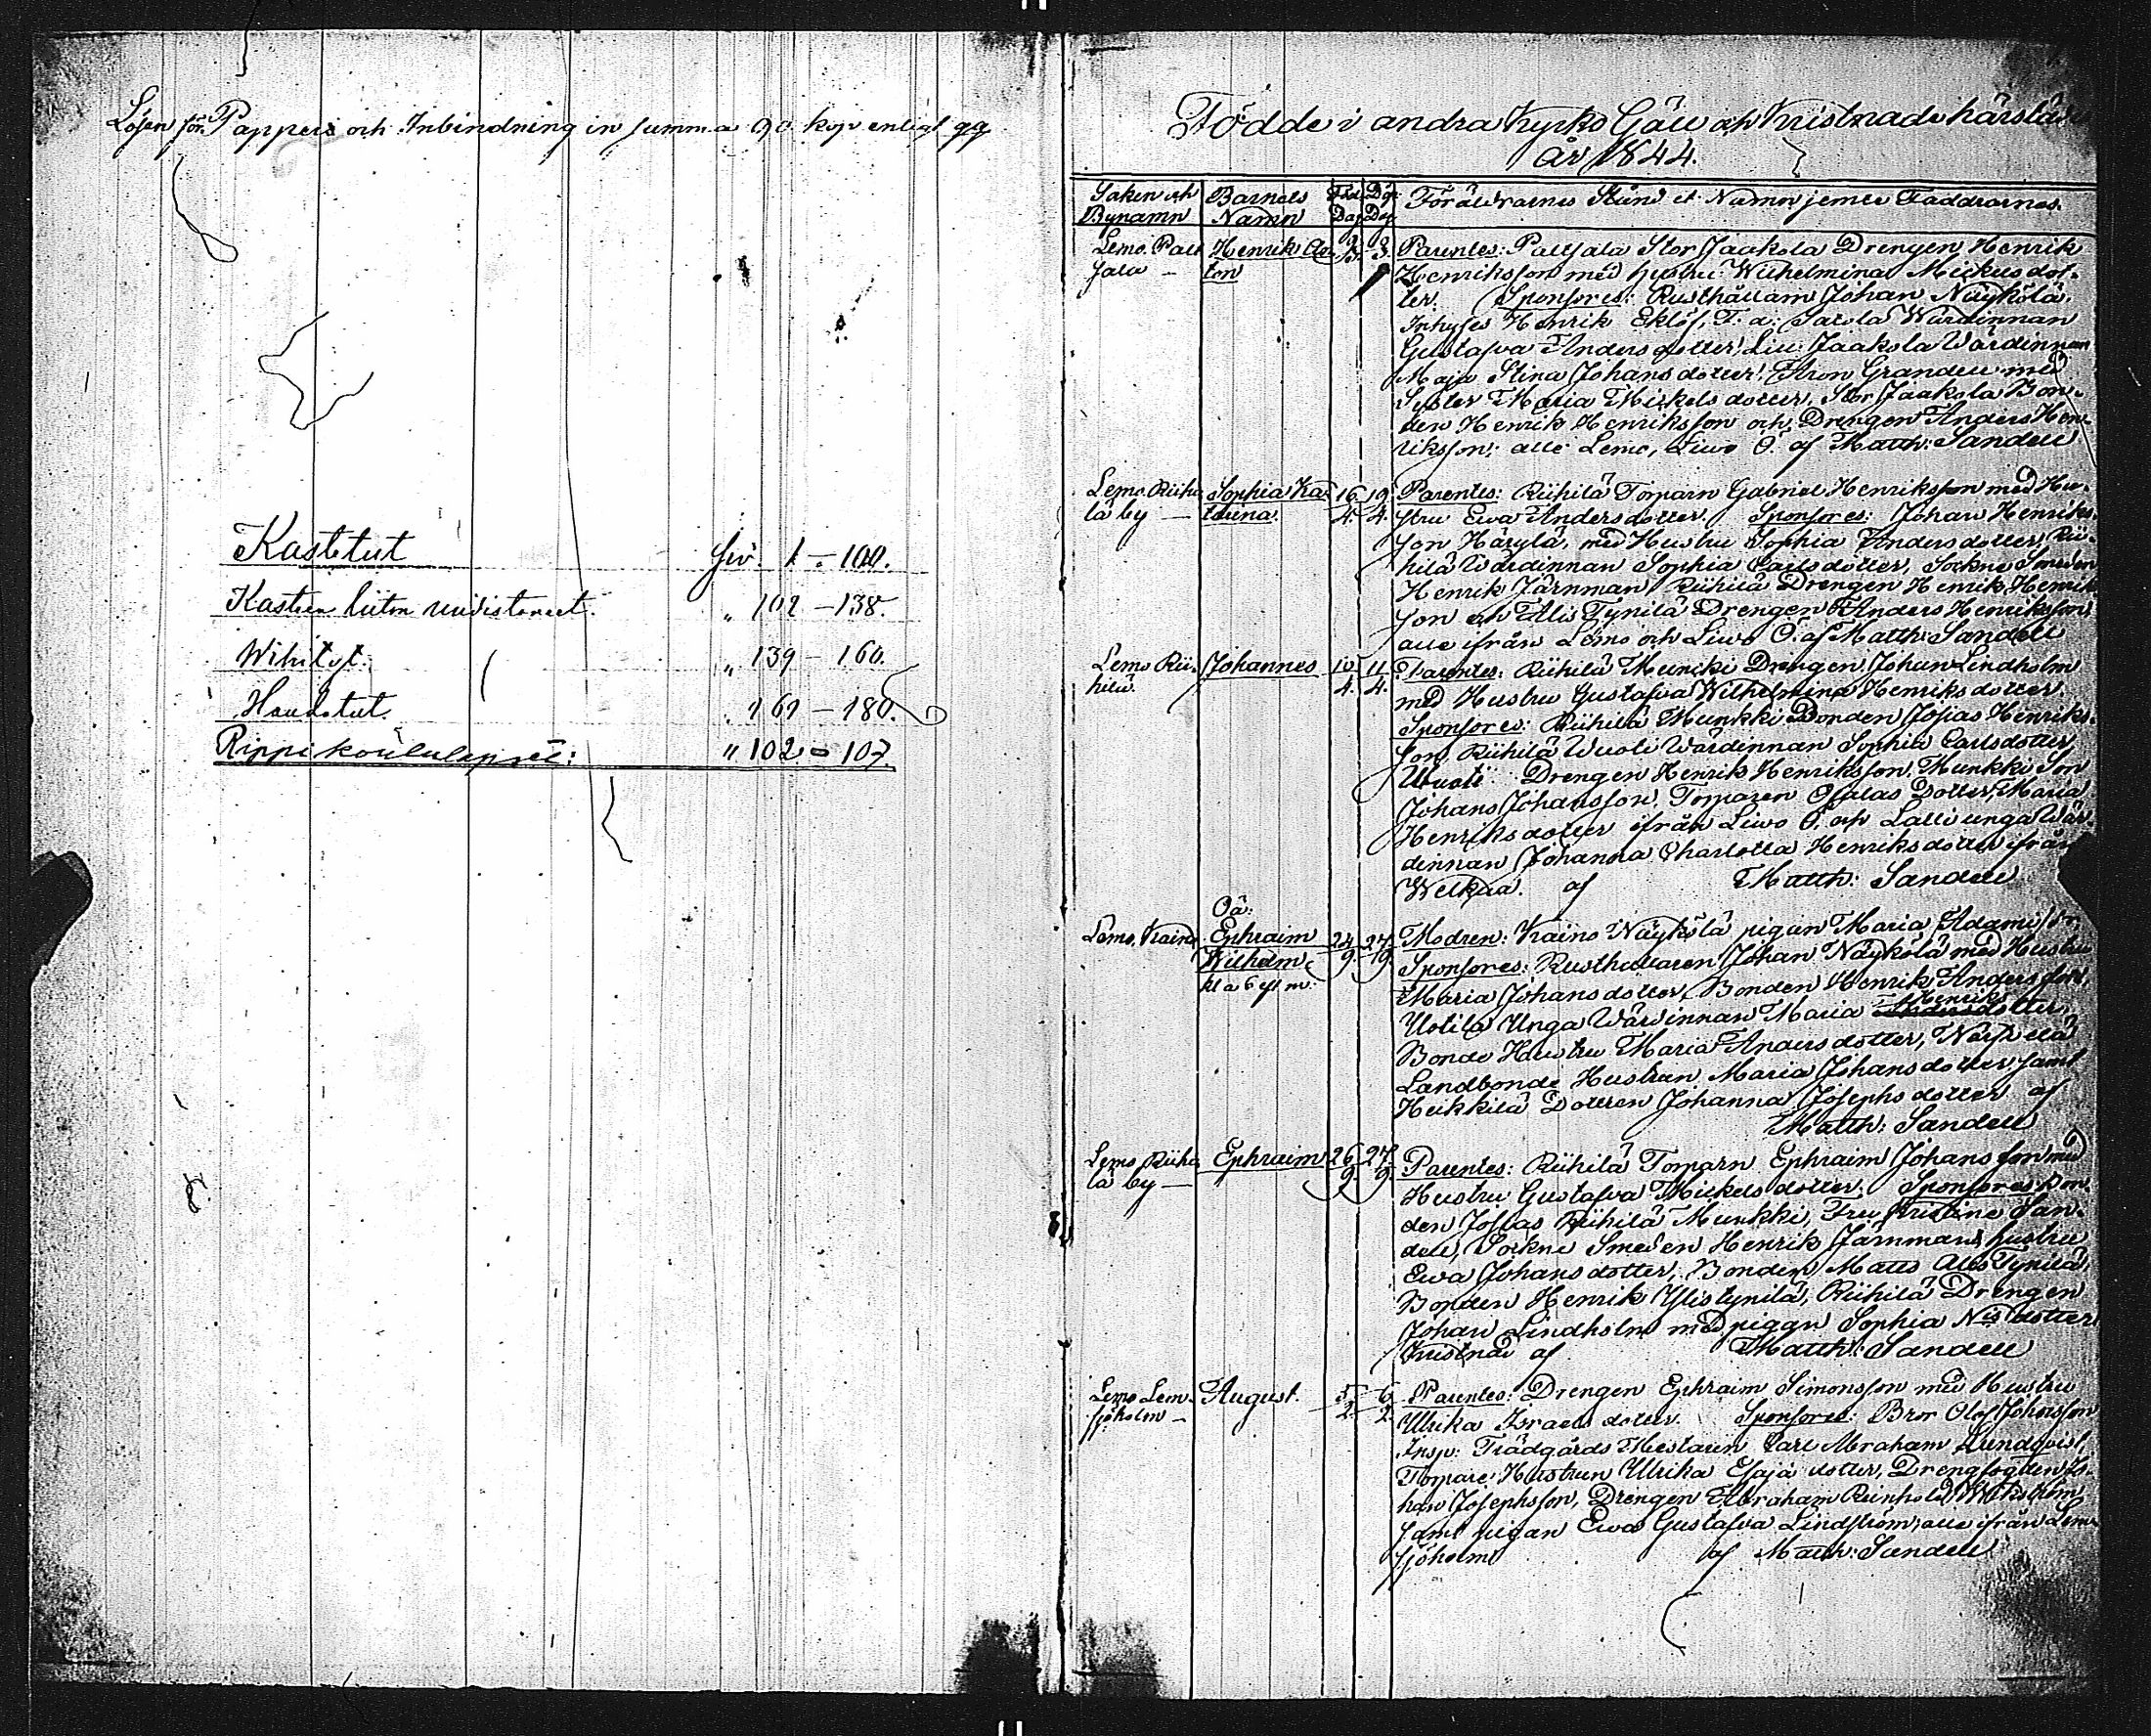 Lösen för Pappers och Inbindning in summa 90 kop enligt qq
Kastetut siv. 1 – 100.
Kasteen liiton uudistaneet. „ 102 – 138.
Wihityt. „ 139 – 160.
Haudatut. „ 161 – 180.
Rippikoululapset: „ 102 – 107.
Födde i andra Kyrko Gäll och Kristnade härstädes
år 1844.
Soknen och Bynamn
Barnets Namn
Föd. Dag
Döp. Dag
Föräldrarnes Stånd et Namn jemte Faddrarnes.
Lemo. Palt
sala –
Henrik An
ton
Parentes: Paltsala Stor Jaakola Drengen Henrik
Henriksson med hustru Wilhelmina Mickels dot-
ter. Sponsores: Rusthållarn Johan Näykölä,
Inhyses Henrik Eklöf, Wärdinnan
Gustafva Anders dotter, Lill Jaakola Wärdinnan
Maja Stina Johans dotter, Aron Grandell med
Syster Maria Mickels dotter, Stor Jaakola Bon-
den Henrik Henriksson och Drengen Anders Hen-
riksson; alle Lemo, Liwo Ö. af Matth: Sandell
Lemo. Riihi
lä by –
Sophia Ka
tarina.
16 19
4. 4.
Parentes: Riihilä Torparn Gabriel Henriksson med Hu-
stru Ewa Anders dotter. Sponsores: Johan Henriks-
son Härylä, med Hustru Sophia Anders dotter, Rii-
hilä Wärdinnan Sophia Carls dotter, Sockne Smeden
Henrik Järnman, Riihilä Drengen Henrik Henrik
son och Alis Tynilä Drengen Anders Henriksson,
alle ifrån Lemo och Liwo Ö. af Matth: Sandell
Lemo Rii-
hilä.
Johannes
10 11
4. 4.
Parentes: Riihilä Munkki Drengen Johan Lindholm
med Hustru Gustafva Wilhelmina Henriks dotter.
Sponsores: Riihilä Munkki Bonden Josias Henriks-
son, Riihilä Wuoti Wärdinnan Sophia Carlsdotter,
Wuoti Drengen Henrik Henriksson, Munkki Son
Johans Johansson, Torparen Dotter, Maria
Henriks dotter ifrån Liwo Ö. och Lalli unga Wär-
dinnan Johanna Charlotta Henriks dotter ifrån
Welkua. af Matth: Sandell
Lemo. Kaino
Oä:
Ephraim
Wilhelm
kl a 6 eft m:
24 27
9. 9.
Modren: Kaino Näykölä pigan Maria Adams dr.
Sponsores: Rusthållaren Johan Näykölä med Hustru
Maria Johans dotter, Bonden Henrik Andersson,
Uotila Unga Wärdinnan Maria Henriks dotter,
Bonde Hustru Maria Anders dotter,
Landbonde Hustrun Maria Johans dotter samt
Heikkilä Dottren Johanna Josephs dotter af
Matth: Sandell
Lemo Riihi
lä by –
Ephraim
26 27
9. 9.
Parentes: Riihilä Torparn Ephraim Johansson med
Hustru Gustafva Mickels dotter. Sponsores: Bon-
den Josias Riihilä Munkki, Fru Kristine San-
dell, Sockne Smeden Henrik Järnmans hustru
Ewa Johans dotter, Bonden Matts Alis Tynilä,
Bonden Henrik Ylis tynilä, Riihilä Drengen
Johan Lindholm med pigan Sophia Nils dotter
Kristnad af Matth: Sandell
Lemo Lem-
sjöholm –
August.
5 6
2. 2.
Parentes: Drengen Ephraim Simonsson med Hustru
Ulrika Israels dotter. Sponsores: Bror Olof Johansson
Insp: Trädgårds Mestaren Carl Abraham Lundqvist,
Torpare Hustrun Ulrika Esaja dotter, Drengfogden Jo-
han Josephsson, Drengen Abraham Reinhold Wikström
samt pigan Ewa Gustafva Lindström, alle ifrån Lem-
sjöholm af Matth: Sandell